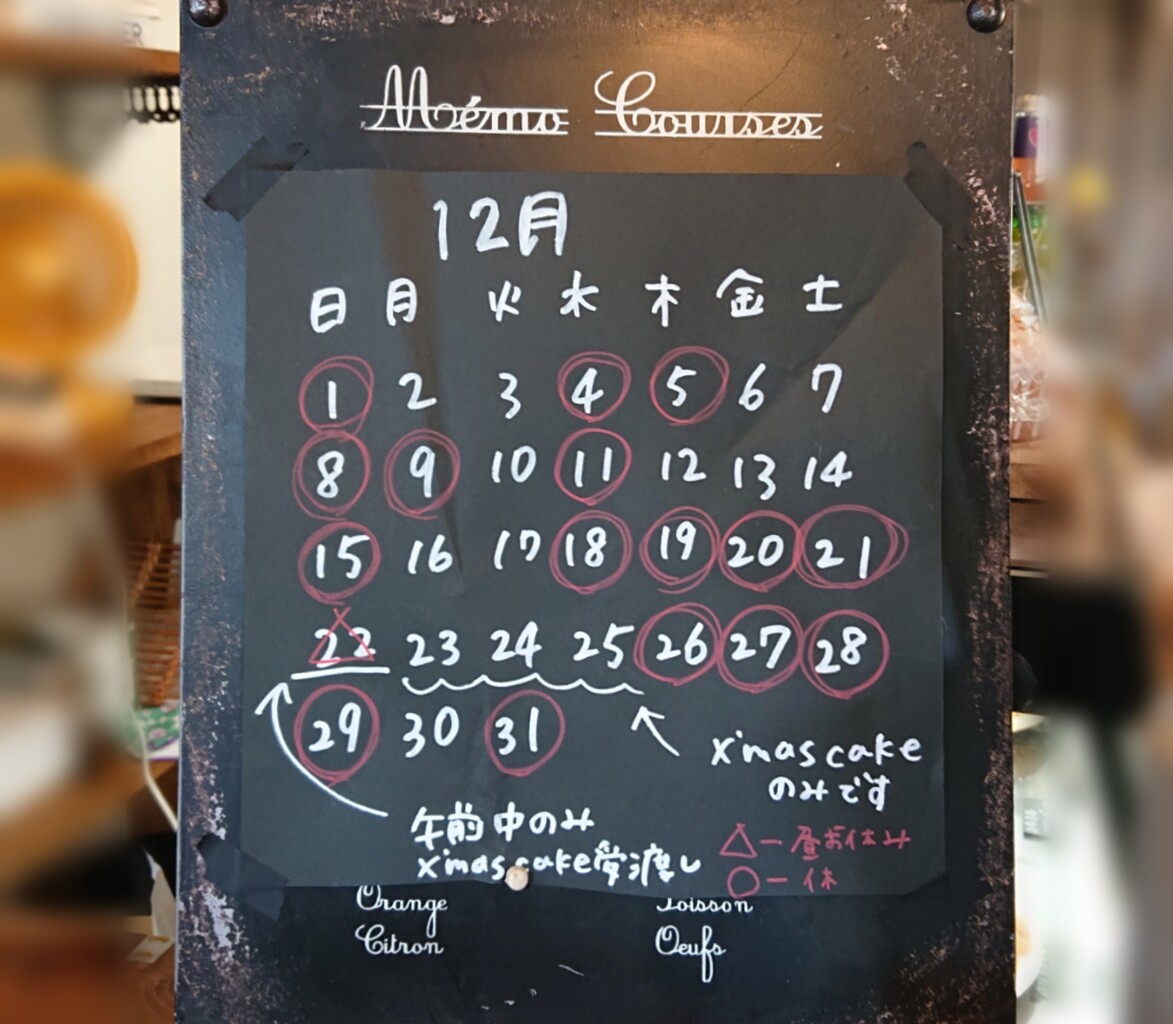 Mémo Courses
12月
日 月 火 水 木 金 土
1 2 3 4 5 6 7
8 9 10 11 12 13 14
15 16 17 18 19 20 21
22 23 24 25 26 27 28
29 30 31
x'mas cake
のみです
午前中のみ
x'mas cake受渡し
△ー昼お休み
○ー休
Orange
Citron
Oeufs